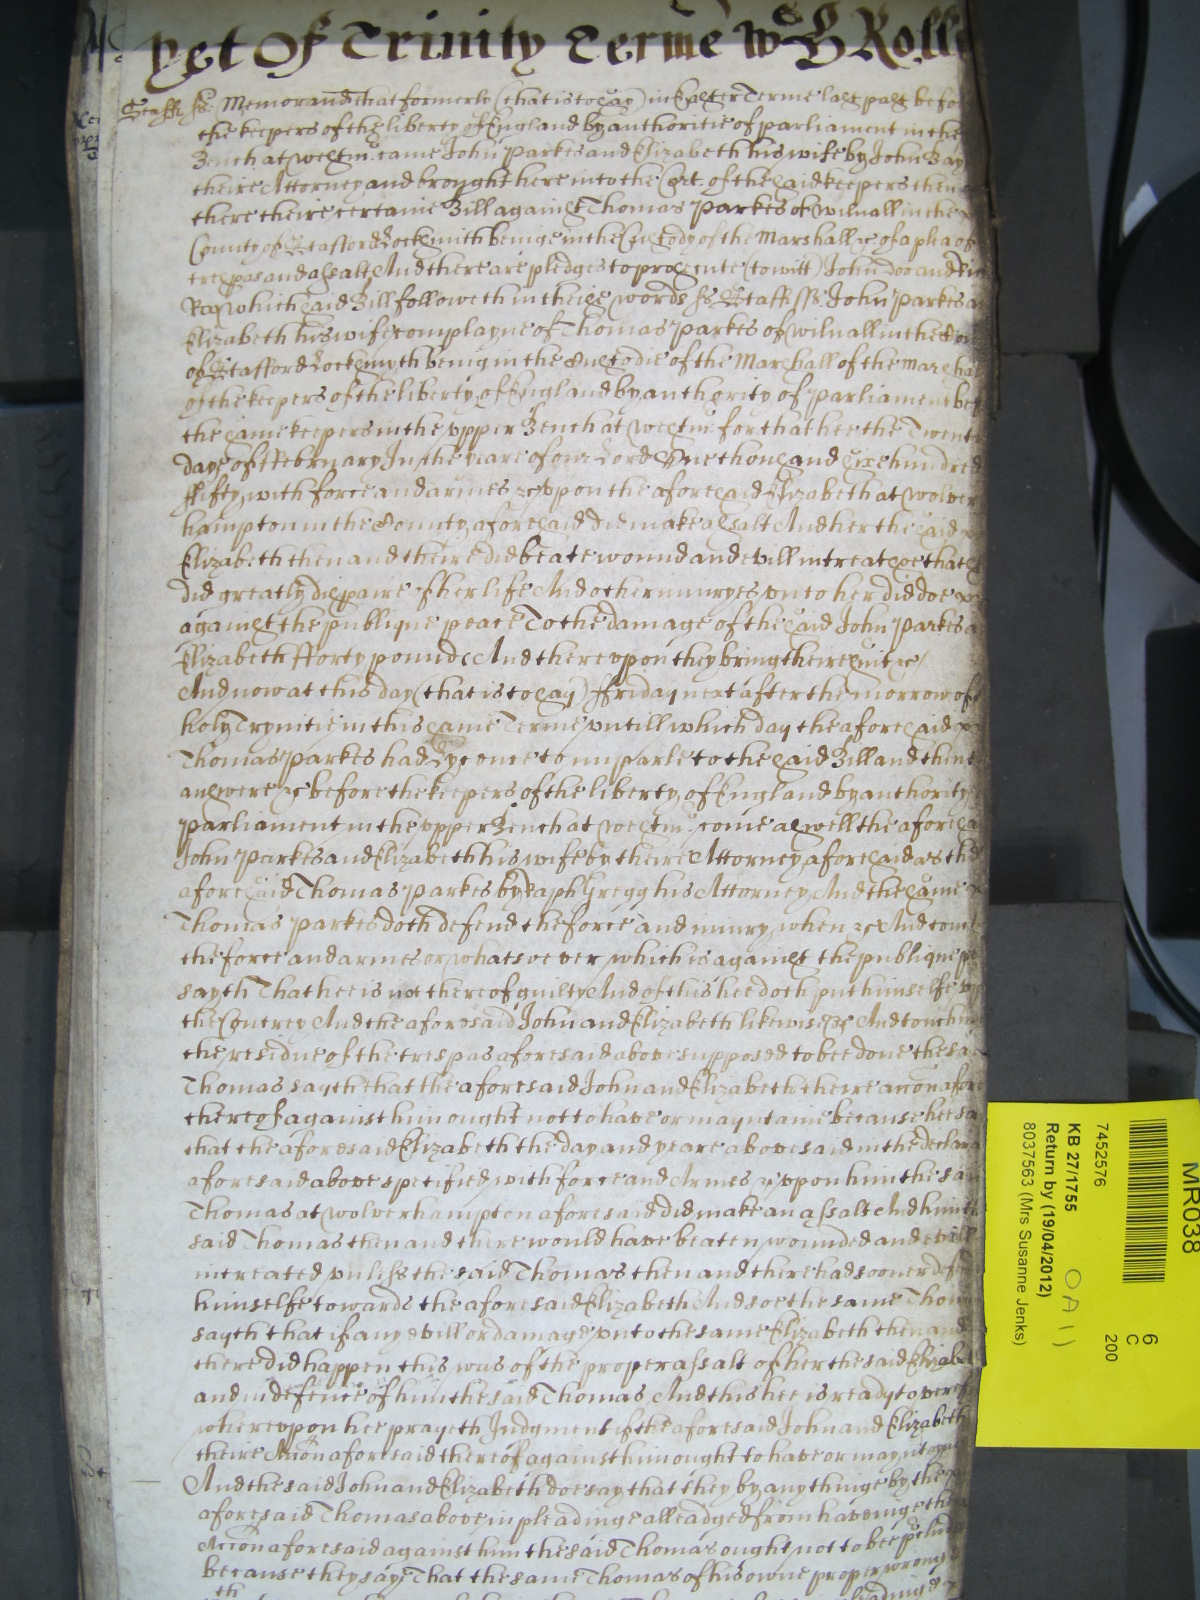 yet Of Trinity Terme wth Rolle
Staff ss Memorand that formerly (that is to say) in Easter Terme last past befo
the keepers of the liberty of England by authoritie of parliament in the
Bench at Westm. came John Parkes and Elizabeth his wife by John Bay
theire Attorney and brought here into the Court of the said keepers then
there theire certaine Bill against Thomas Parkes of Wilnall in the
County of Stafford Locksmith beinge in the Custody of the Marshall &c of a plea of
trespas and assalt And there are pledges to prosecute (to witt) John doo and Ric
Roo which said Bill followeth in theise words ss Staff ss John Parkes a
Elizabeth his wife complayne of Thomas Parkes of Wilnall in the Cou
of Stafford Locksmyth being in the Custodie of the Marshall of the Marshal
of the keepers of the liberty of England by authority of parliament bef
the same keepers in the upper Bench at Westm for that hee the Twent
daye of ffebruary In the yeare of our Lord One thousand sixe hundred
ffifty with force and armes &c upon the aforesaid Elizabeth at Wolver
hampton in the County aforesaid did make assalt And her the said
Elizabeth then and theire did beate wound and evill intreat soe that
did greatly dispaire of her life And other iniuryes unto her did doe
against the publique peace To the damage of the said John Parkes a
Elizabeth fforty pounds And thereupon they bring theire suit &c
And now at this day (that is to say) ffriday next after the morrow of
holy Trynitie in this same Terme untill which day the aforesaid
Thomas Parkes had Lycence to imparle to the said Bill and then t
answere &c before the keepers of the liberty of England by authority
Parliament in the upper Bench at Westm. come aswell the aforesa
John Parkes and Elizabeth his wife by theire Attorney aforesaid as the
aforesaid Thomas Parkes by Raph Gregg his Attorney And the same
Thomas Parkes doth defend the force and iniury when &c And touc
the force and armes or whatsoever which is against the publique pe
sayth That hee is not thereof guilty And of this hee doth put himselfe up
the Contrey And the aforesaid John and Elizabeth likewise &c And touchin
the residue of the trespas aforesaid above supposed to bee done the sa
Thomas sayth that the aforesaid John and Elizabeth theire accon afore
thereof against him ought not to have or mayntaine because hee sa
that the aforesaid Elizabeth the day and yeare abovesaid in the declara
aforesaid above specified with force and Armes &c upon him the sai
Thomas at Wolverhampton aforesaid did make an assalt And him th
said Thomas then and there would have beaten wounded and evill
intreated unless the said Thomas then and there had sooner defe
himselfe towards the aforesaid Elizabeth And soe the same Thom
sayth that if any evill or damage unto the same Elizabeth then and
there did happen this was of the proper assalt of her the said Elizabet
and in defence of him the said Thomas And this hee is ready to verif
whereupon hee prayeth Judgment if the aforesaid John and Elizabeth
theire Accon aforesaid thereof against him ought to have or mayntayn
And the said John and Elizabeth doe say that they by any thinge by the
aforesaid Thomas above in pleadinge alleadged from haveinge the
Accon aforesaid against him the said Thomas ought not to bee preclud
because they say That the same Thomas of his owne proper wrong
MR038
6
C
200
7452576
KB 27/1755
OA11
Return by (19/04/2012)
8037563 (Mrs Susanne Jenks)